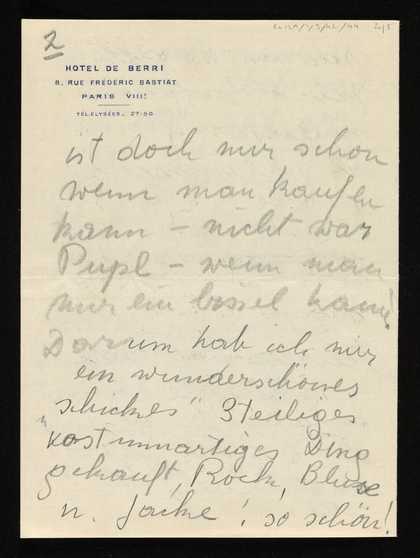 2
HOTEL DE BERRI
8, RUE FRÉDÉRIC BASTIAT
PARIS VIIIE
TÉL. ELYSÉES. 27-50
ist doch nur schön
wenn man kaufen
kann – nicht war
Pupl – wenn man
nur ein bissel kann!
Darum hab ich mir
ein wunderschönes
schickes 3teiliges
"kostümartiges Ding
gekauft, Rock, Bluse
u. Jacke! so schön!